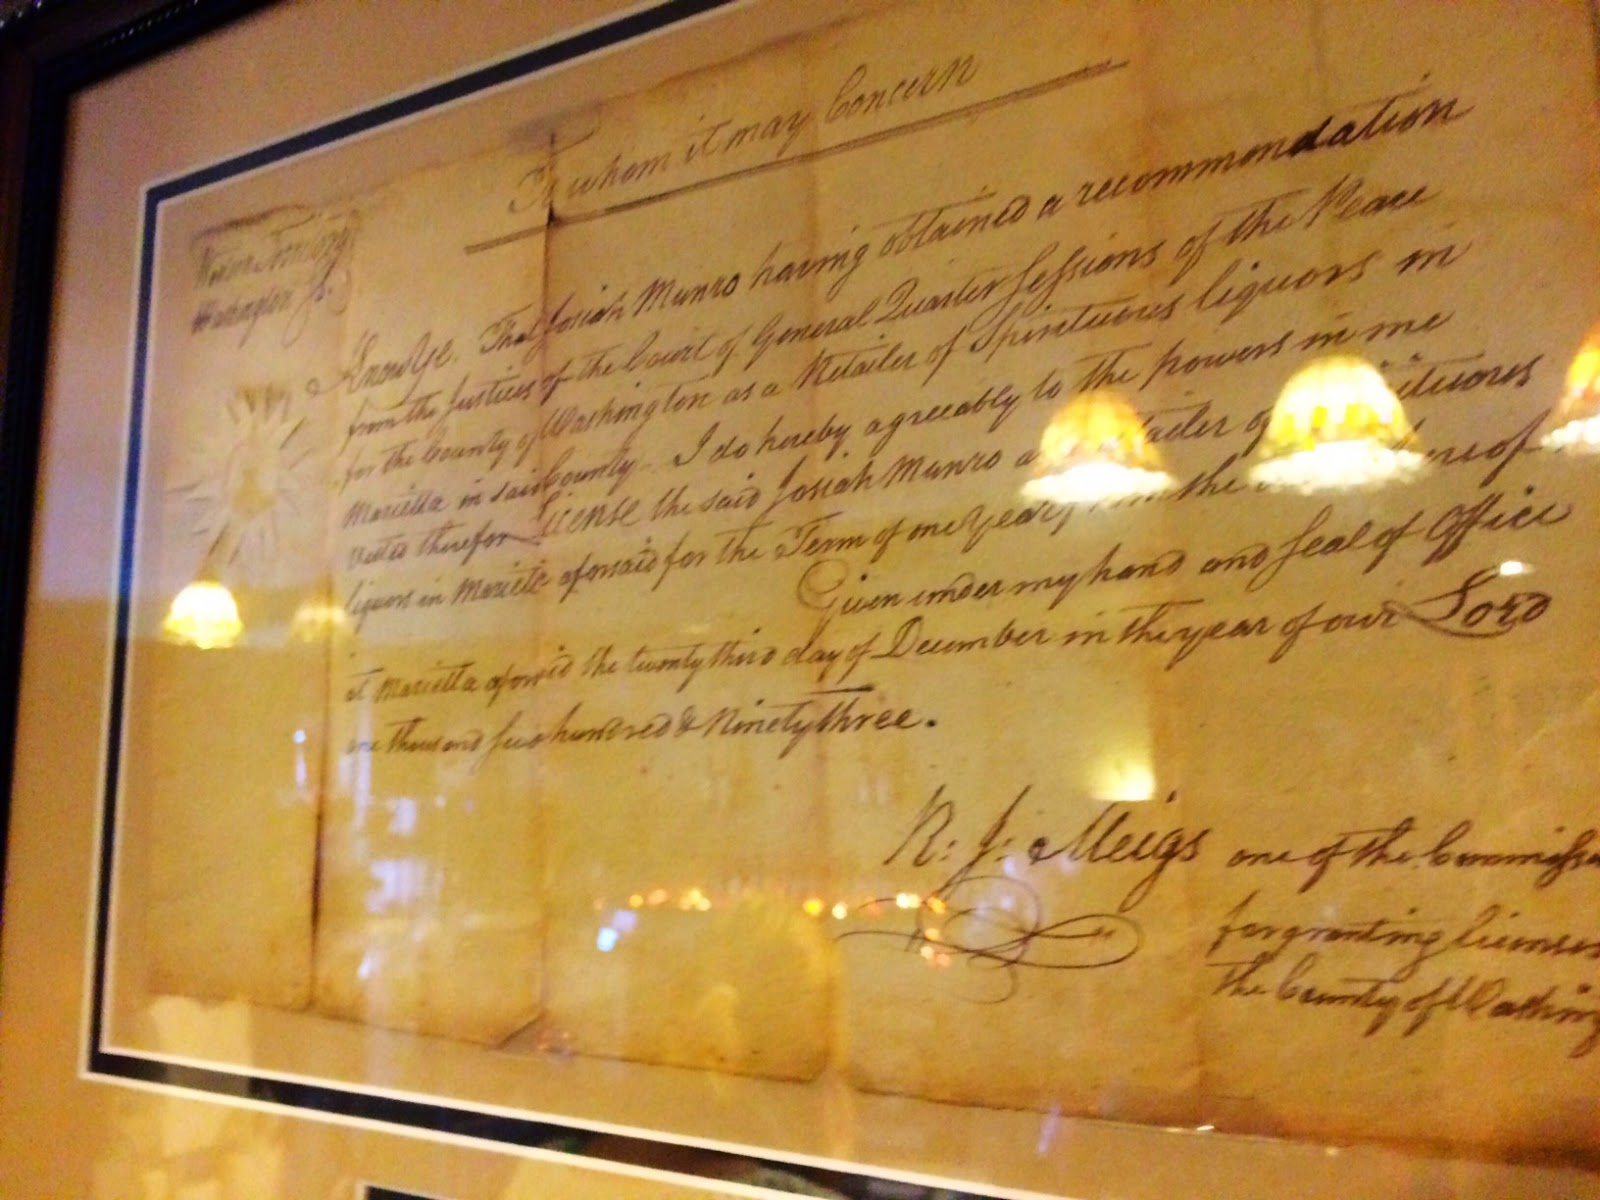 To whom it may Concern
Washington Ss.
Know Ye. That Josiah Munro having obtained a recommondation
from the Justices of the Court of General Quarter Sessions of the Peace
for the County of Washington as a Retailer of Spirituous liquors in
Marietta in said County. I do hereby agreeably to the powers in me
vested therefor License the said Josiah Munro a of
liquors in Marietta aforesaid for the Term of one Year from the hereof
Given under my hand and Seal of Office
at Marietta aforesaid the twenty third day of December in the year of our Lord
one thousand seven hundred & Ninety three.
R: J: Meigs one of the
for granting licenses
the County of